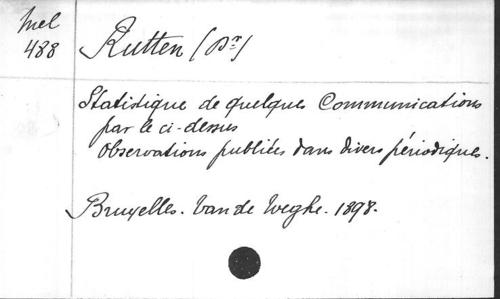 Mel
488
Rutten (Dr)
Statistique de quelques Communications
par le ci-dessus
Observations publiées dans divers périodiques.
Bruxelles. Van de Weghe. 1898.